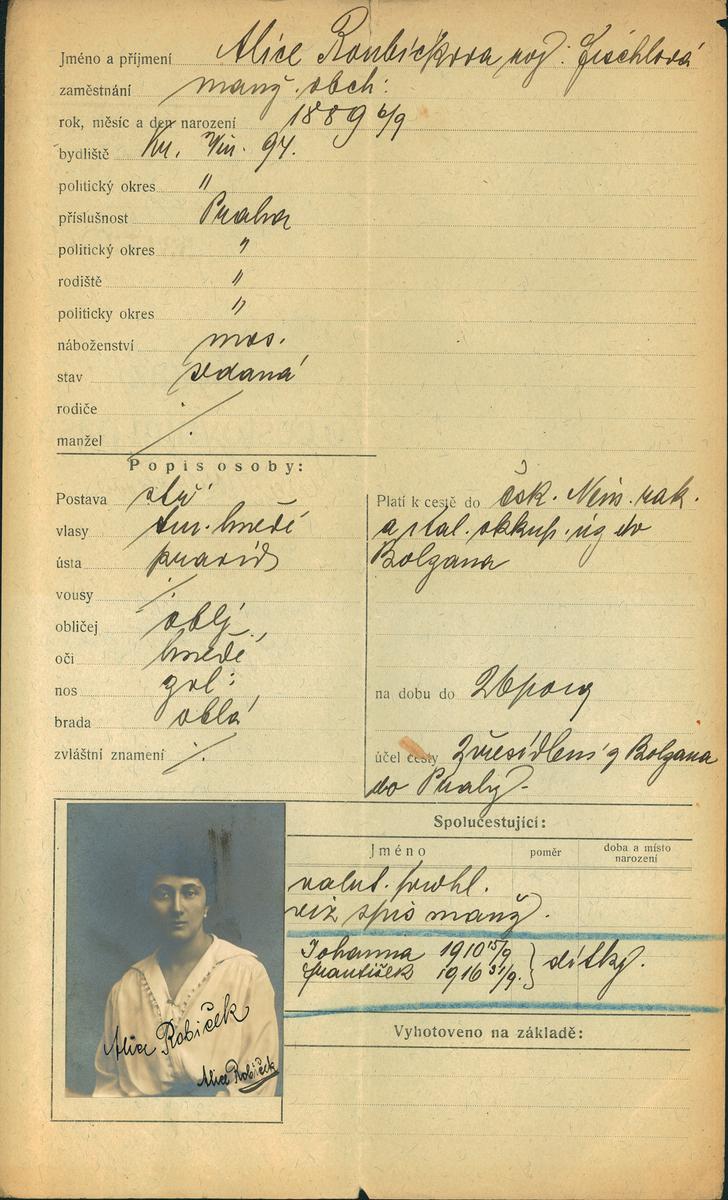 Jméno a příjmení Alice Roubíčkova roz: Fischlová
zaměstnání manž. obch.
rok, měsíc a den narození 1889 6/9
bydliště Kr. Vin. 94.
politický okres "
příslušnost Praha
politický okres "
rodiště "
politicky okres "
náboženství mos.
stav vdaná
rodiče ./.
manžel
Popis osoby:
Postava stř
vlasy tm. hnědé
ústa pravid
vousy ./.
obličej oblý
oči hnědé
nos
brada oblá
zvláštní znamení ./.
Platí k cestě do čsk. Něm. rak.
a ital. okkup. úz do
Bolzana
na dobu do
účel cesty z Bolzana
do Prahy.
Spolučestující:
Jméno poměr doba a místo narození
valut. prohl.
viz spis manž.
Johanna 1910 15/9 } dítky.
František 1916
Vyhotoveno na základě:
Alice Robiček
Alice Robiček